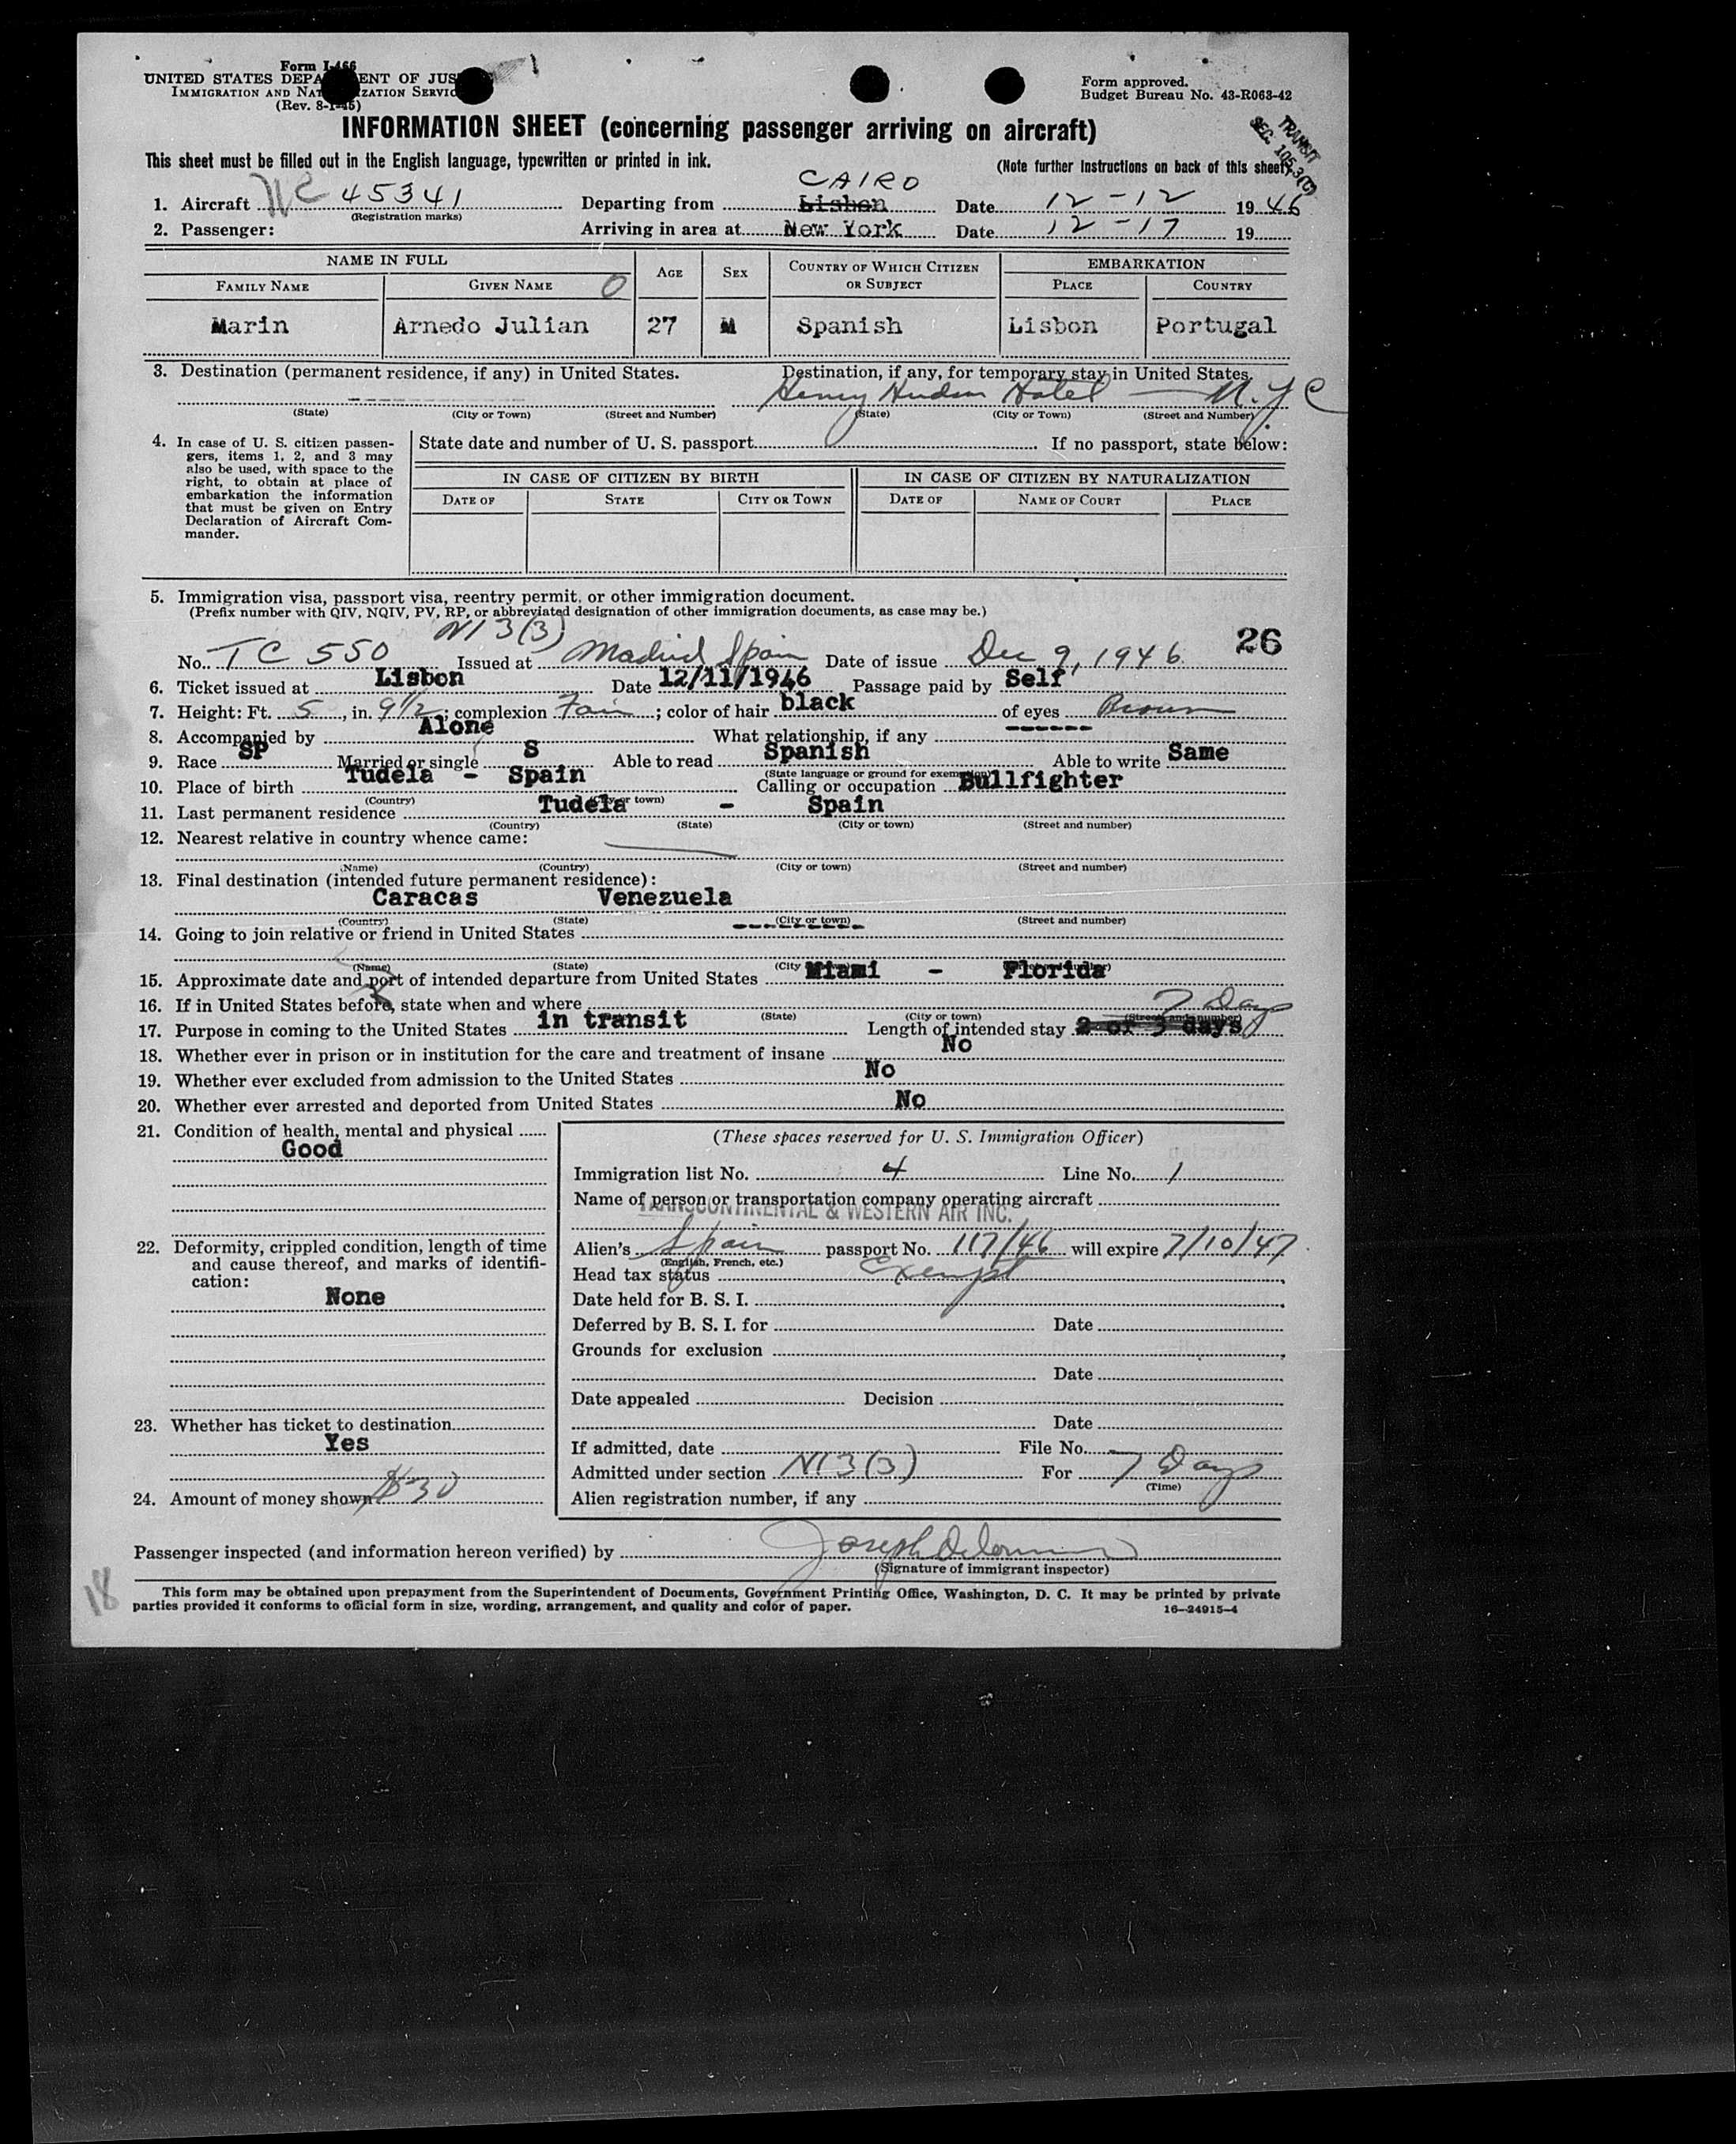 Form I-466
UNITED STATES DEPA ENT OF JUS
IMMIGRATION AND NAT ZATION SERVIC
(Rev. 8-1-45)
Form approved.
Budget Bureau No. 43-R063-42
INFORMATION SHEET (concerning passenger arriving on aircraft)
TRANSIT
SEC. 105.3(C)
This sheet must be filled out in the English language, typewritten or printed in ink.
(Note further instructions on back of this sheet)
CAIRO
1. Aircraft NC 45341 Departing from Lisbon Date 12-12 1946
(Registration marks)
2. Passenger: Arriving in area at New York Date 12-17 19
NAME IN FULL AGE SEX COUNTRY OF WHICH CITIZEN OR SUBJECT EMBARKATION
FAMILY NAME GIVEN NAME 0 PLACE COUNTRY
Marin Arnedo Julian 27 M Spanish Lisbon Portugal
3. Destination (permanent residence, if any) in United States. Destination, if any, for temporary stay in United States.
Henry Hudson Hotel — N.Y.C
(State) (City or Town) (Street and Number) (State) (City or Town) (Street and Number)
4. In case of U. S. citizen passen-
gers, items 1, 2, and 3 may
also be used, with space to the
right, to obtain at place of
embarkation the information
that must be given on Entry
Declaration of Aircraft Com-
mander.
State date and number of U. S. passport If no passport, state below:
IN CASE OF CITIZEN BY BIRTH IN CASE OF CITIZEN BY NATURALIZATION
DATE OF STATE CITY OR TOWN DATE OF NAME OF COURT PLACE
5. Immigration visa, passport visa, reentry permit, or other immigration document.
(Prefix number with QIV, NQIV, PV, RP, or abbreviated designation of other immigration documents, as case may be.)
NI 3(3)
26
No. TC 550 Issued at Madrid Spain Date of issue Dec 9, 1946
6. Ticket issued at Lisbon Date 12/11/1946 Passage paid by Self
7. Height: Ft. 5, in. 9 1/2; complexion Fair; color of hair black of eyes Brown
8. Accompanied by Alone What relationship, if any -------
9. Race SP Married or single S Able to read Spanish Able to write Same
(State language or ground for exemption)
10. Place of birth Tudela - Spain Calling or occupation Bullfighter
(Country) (City or town)
11. Last permanent residence Tudela - Spain
(Country) (State) (City or town) (Street and number)
12. Nearest relative in country whence came:
(Name) (Country) (City or town) (Street and number)
13. Final destination (intended future permanent residence):
Caracas Venezuela
(Country) (State) (City or town) (Street and number)
14. Going to join relative or friend in United States
(Name) (State) (City
15. Approximate date and port of intended departure from United States Miami - Florida
16. If in United States before, state when and where
7 Days
(State) (City or town) (Street and number)
17. Purpose in coming to the United States in transit Length of intended stay 2 or 3 days
18. Whether ever in prison or in institution for the care and treatment of insane No
19. Whether ever excluded from admission to the United States No
20. Whether ever arrested and deported from United States No
21. Condition of health, mental and physical
Good
22. Deformity, crippled condition, length of time
and cause thereof, and marks of identifi-
cation:
None
23. Whether has ticket to destination
Yes
24. Amount of money shown $30
(These spaces reserved for U. S. Immigration Officer)
Immigration list No. 4 Line No. 1
Name of person or transportation company operating aircraft
TRANSCONTINENTAL & WESTERN AIR INC.
Alien's Spain passport No. 117/46 will expire 7/10/47
(English, French, etc.)
Head tax status Exempt
Date held for B. S. I.
Deferred by B. S. I. for Date
Grounds for exclusion
Date
Date appealed Decision
Date
If admitted, date File No.
Admitted under section NI 3(3) For 7 Days
(Time)
Alien registration number, if any
Passenger inspected (and information hereon verified) by Joseph
(Signature of immigrant inspector)
18
This form may be obtained upon prepayment from the Superintendent of Documents, Government Printing Office, Washington, D. C. It may be printed by private
parties provided it conforms to official form in size, wording, arrangement, and quality and color of paper.
16—24915-4